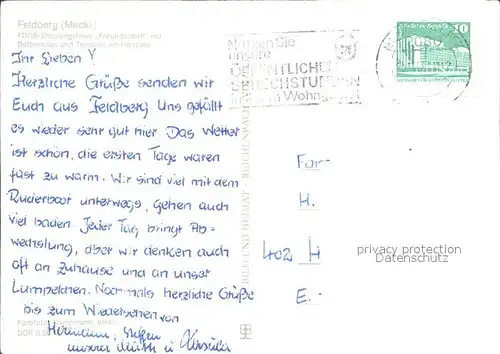 Feldberg (Meckl.)
FDGB-Erholungsheim „Freundschaft“ mit
Bettenhaus und Terrasse am Haussee
Ihr Lieben!
Herzliche Grüße senden wir
Euch aus Feldberg Uns gefällt
es wieder sehr gut hier Das Wetter
ist schön, die ersten Tage waren
fast zu warm. Wir sind viel mit dem
Ruderboot unterwegs, gehen auch
viel baden Jeder Tag bringt Ab-
wechslung, aber wir denken auch
oft an Zuhause und an unser
Lumpelchen. Nochmals herzliche Grüße
bis zum Wiedersehen von
Hermann, Steffen
unserer Mutti u. Ursula
DDR
BILD UND HEIMAT · REICHENBACH
Nutzen Sie
unsere
ÖFFENTLICHEN
SPRECHSTUNDEN
Wohn
10
DDR
Fam-
H.
402 H
E.-
privacy protection
Datenschutz